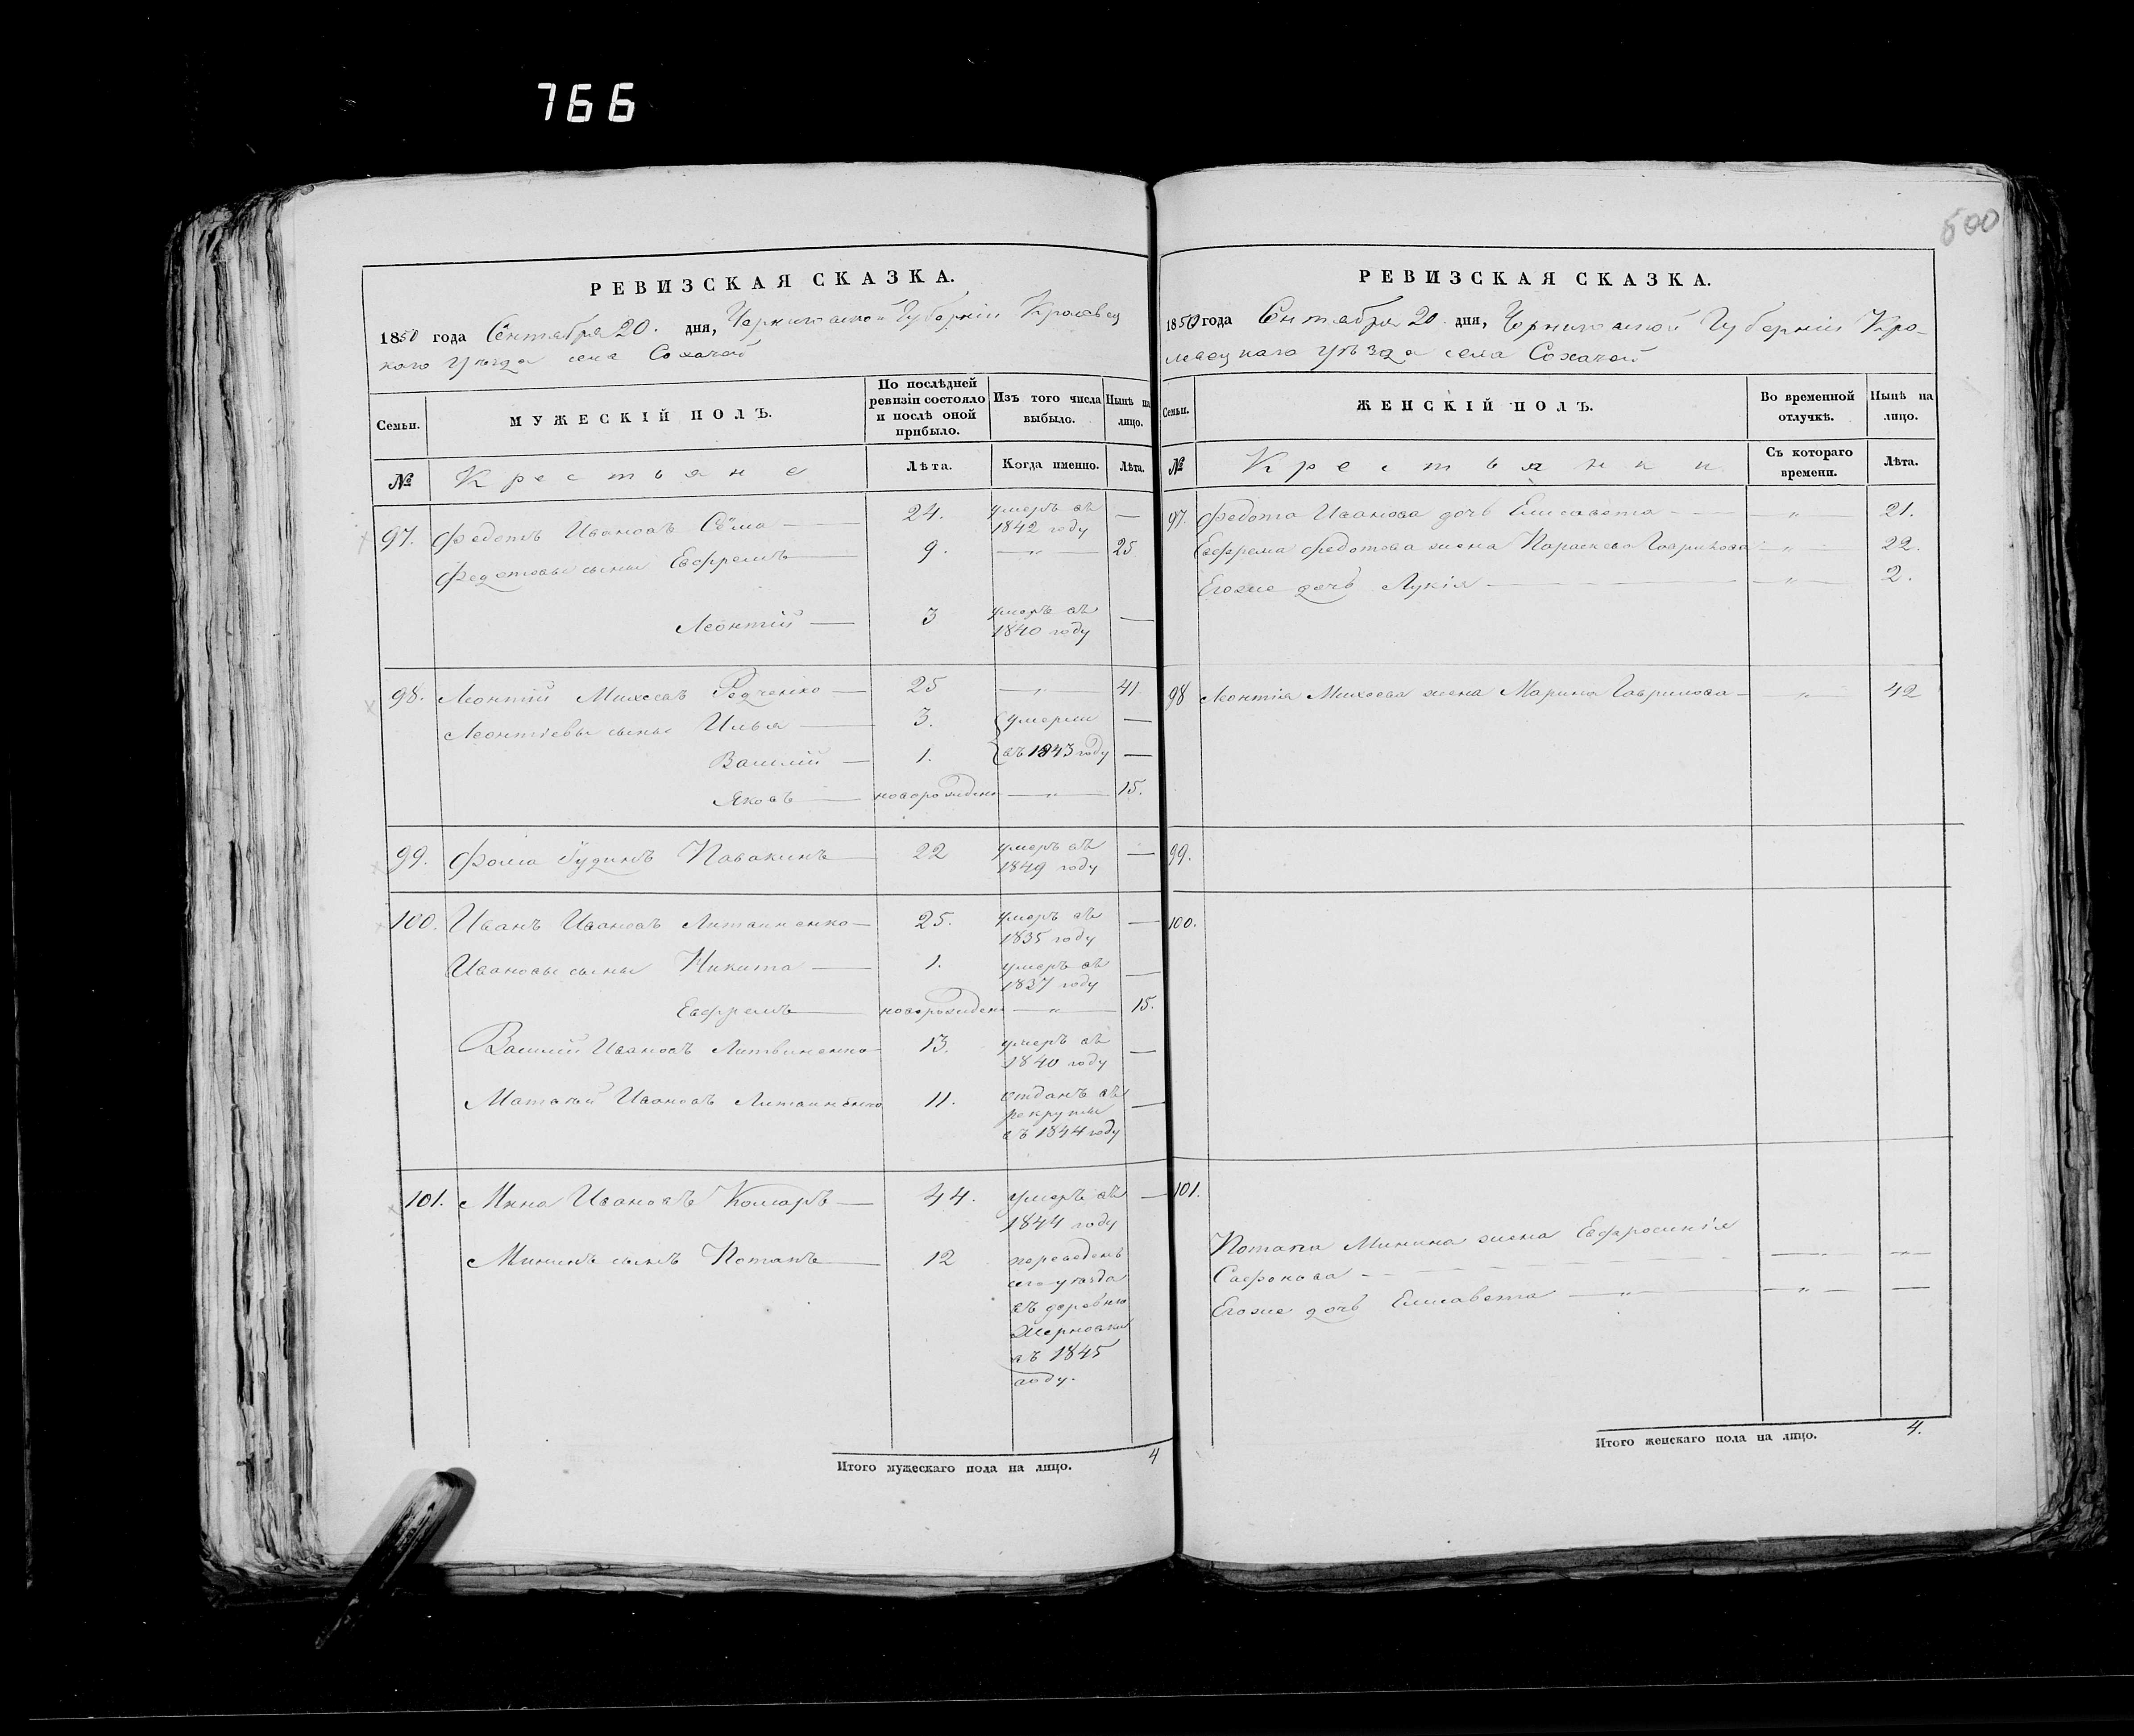 766
500
РЕВИЗСКАЯ СКАЗКА.
1850 года Сентября 20. дня, Черниговской Губерніи Кролевец
кого Уѣзда села Сохачей
Семьи. МУЖЕСКІЙ ПОЛЪ. По послѣдней ревизіи состояло и послѣ оной прибыло. Изъ того числа выбыло. Нынѣ на лицо.
№ Крестьяне Лѣта. Когда именно. Лѣта.
97. Федотъ Ивановъ Сёма — 24. умеръ въ 1842 году —
Федотовы сыны Евфремъ — 9. — „ — 25.
Леонтій — 3 умеръ въ 1840 году —
98. Леонтій Михеевъ Редченко — 25 — „ — 41.
Леонтіевы сыны Илья — 3. умерли —
Василій — 1. въ 1843 году —
Яковъ — новорожден — „ — 15.
99. Фома Гудинъ — 22 умеръ въ 1849 году —
100. Иванъ Ивановъ Литвиненко — 25. умеръ въ 1835 году —
Ивановы сыны Никита — 1. умеръ въ 1837 году —
Евфремъ — новорожден — „ — 15.
Василій Ивановъ Литвиненко 13. умеръ въ 1840 году —
Матвѣй Ивановъ Литвиненко 11. отданъ въ рекруты въ 1844 году —
101. Мина Ивановъ Комаръ — 44. умеръ въ 1844 году —
Мининъ сынъ Потапъ — 12 переведенъ
сего уѣзда
въ деревню
въ 1845
году.
Итого мужескаго пола на лицо. 4
РЕВИЗСКАЯ СКАЗКА.
1850 года Сентября 20. дня, Черниговской Губерніи Кро-
левецкаго Уѣзда села Сохачей
Семьи. ЖЕНСКІЙ ПОЛЪ. Во временной отлучкѣ. Нынѣ на лицо.
№ Крестьянки Съ котораго времени. Лѣта.
97. Федота Иванова дочь Елисавета — „ — 21.
Евфрема Федотова жена Параскева Гаврилова — „ — 22.
Егоже дочь Лукія — „ — 2.
98 Леонтія Михеева жена Марина Гаврилова — „ — 42
99.
100.
101.
Потапа Минина жена Евфросинія
Сафонова — — —
Егоже дочь Елисавета — „ — „ —
Итого женскаго пола на лицо. 4.